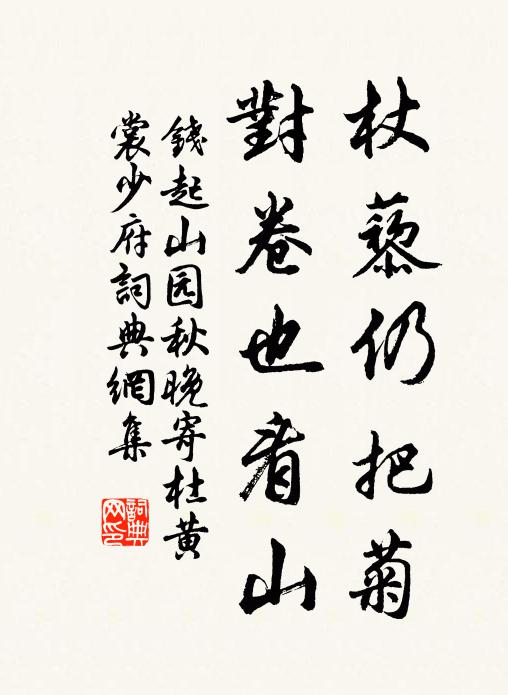 杖藜仍把菊
對卷也看山
錢起山园秋晚寄杜黄
裳少府詞典網集
詞典
网印